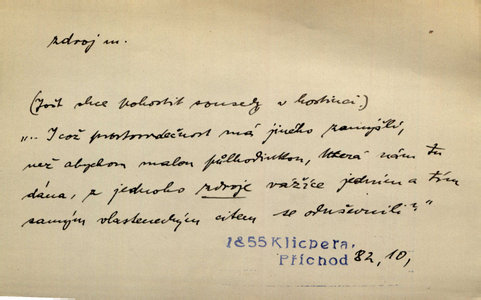 zdroj m.
(Jošt chce pohostit sousedy v hostinci.)
„.. I což prostosrdečnost má jiného zamýšlí,
než abychom malou půlhodinkou, která nám tu
dána, z jednoho zdroje vážíce jedním a tím
samým vlasteneckým citem se oduševnili?"
1855 Klicpera,
Příchod 82, 10,